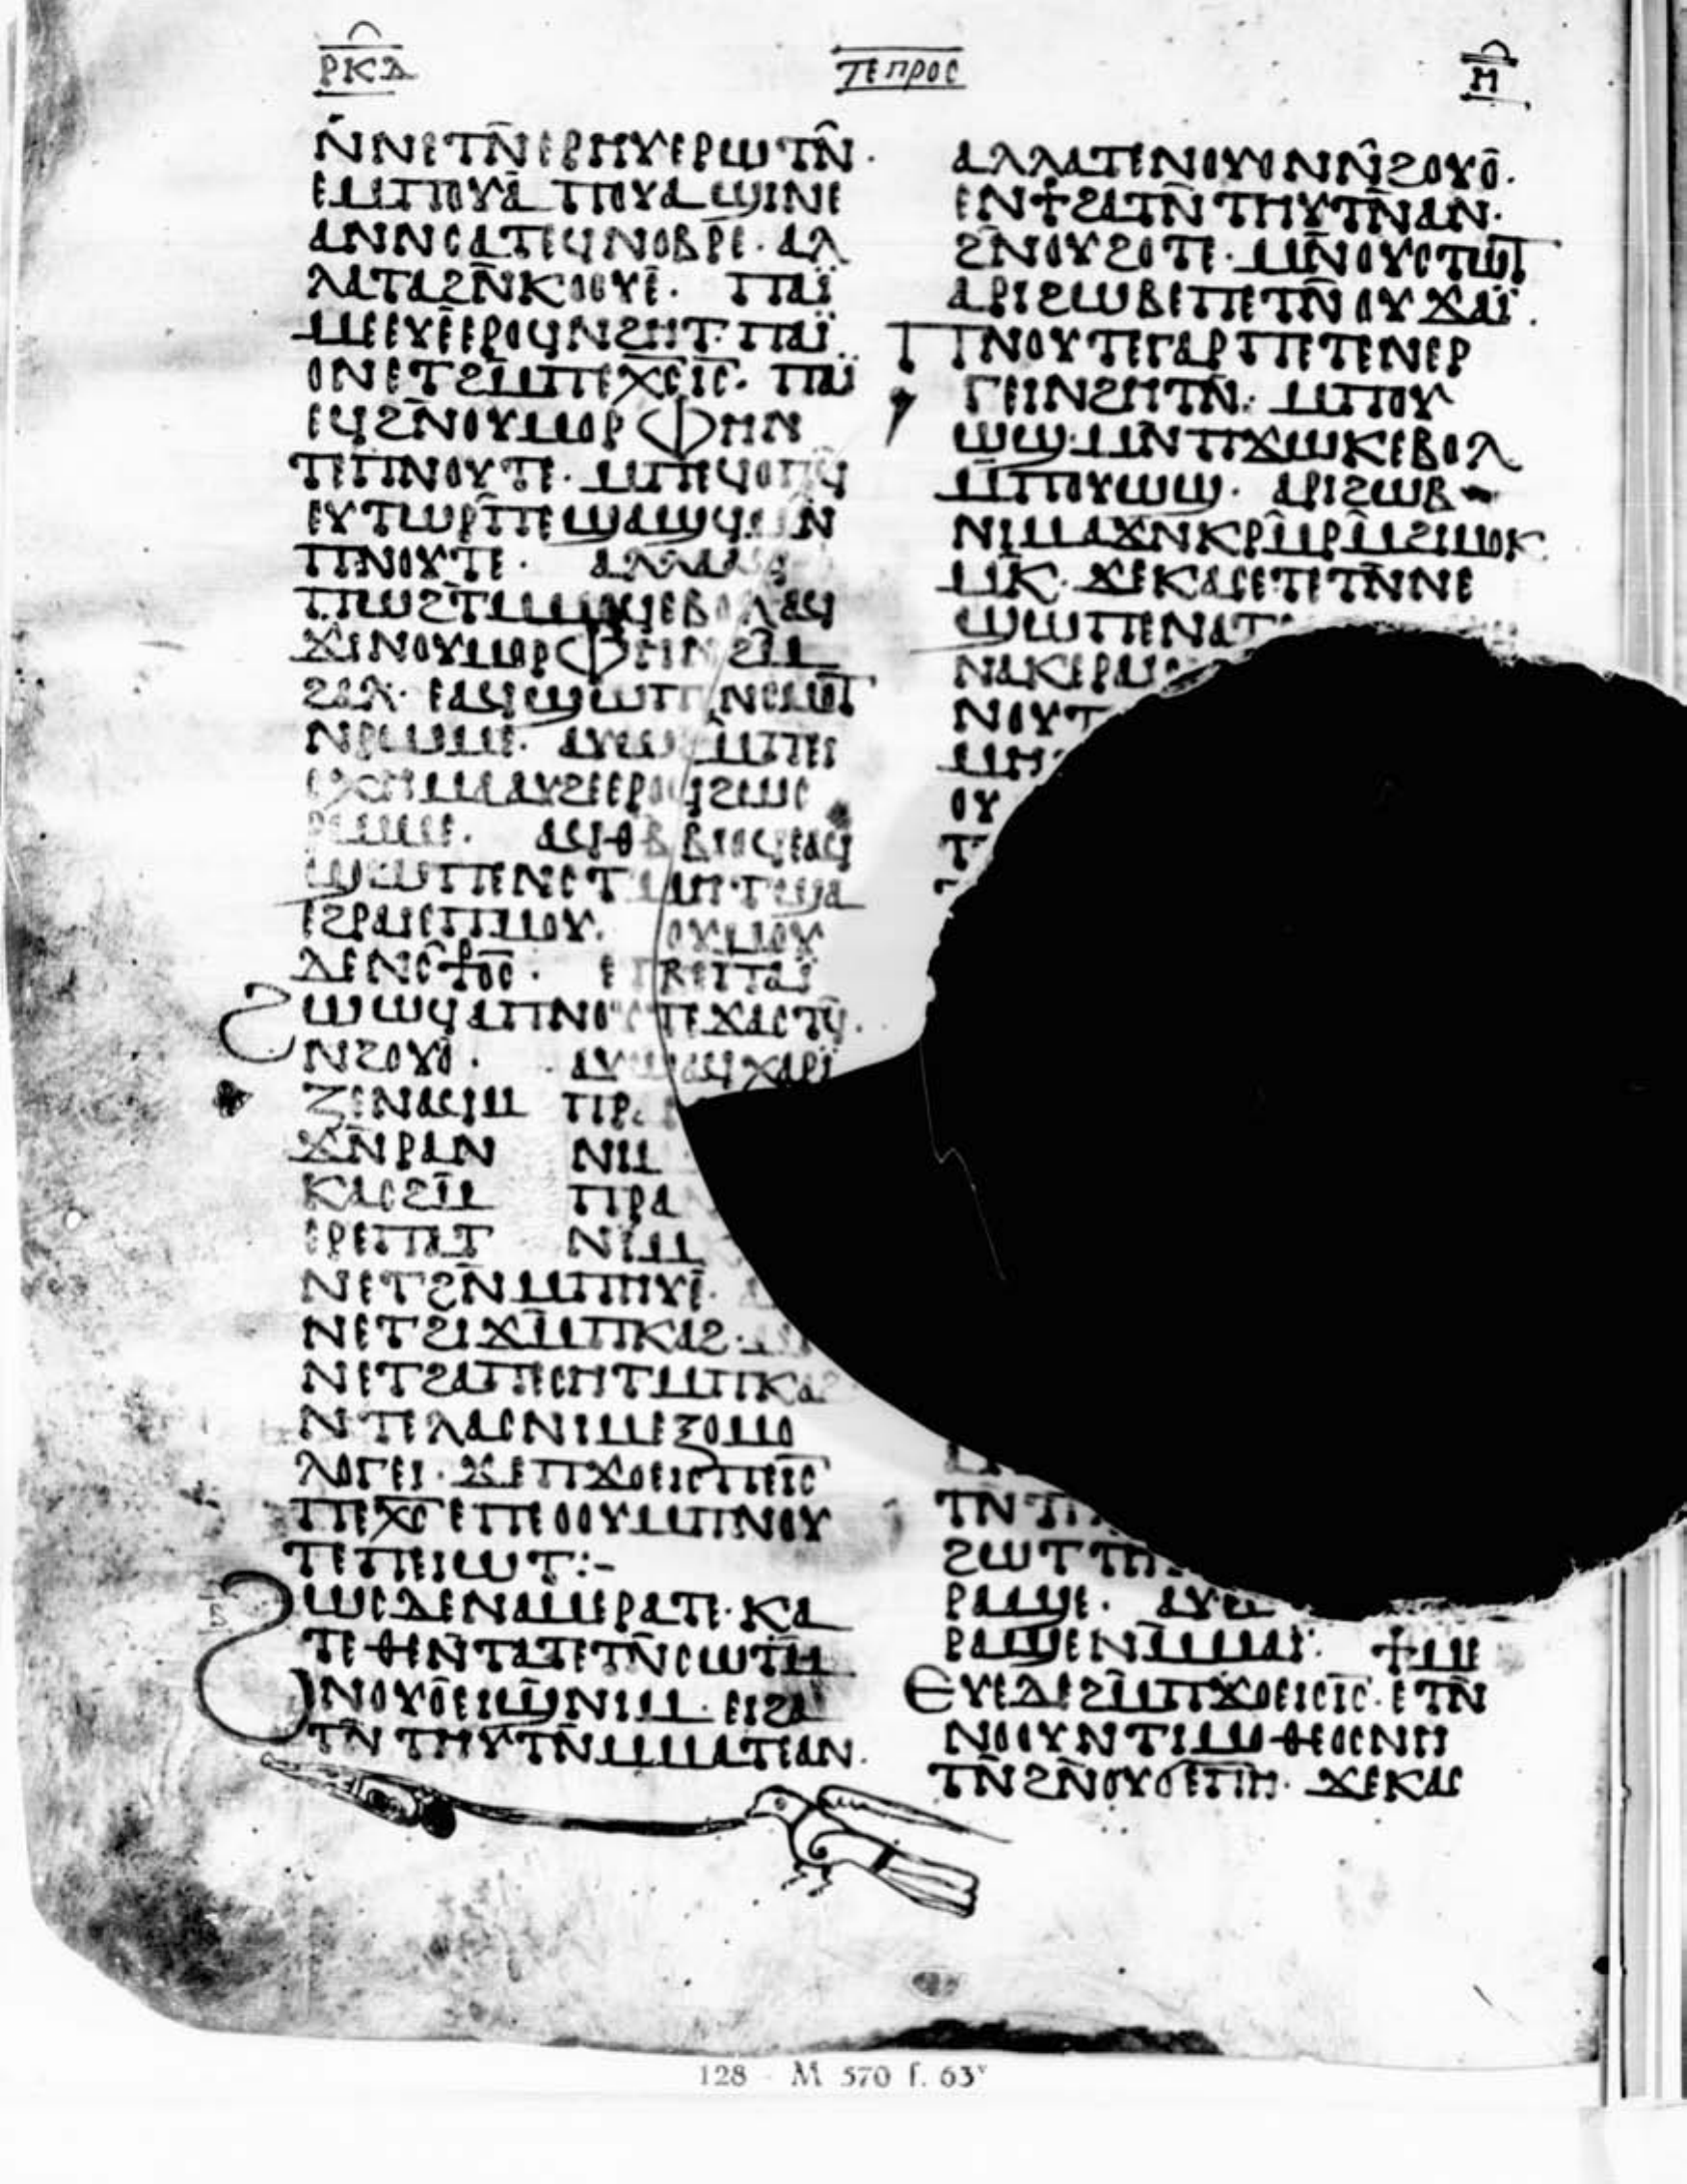 ⲣⲕⲇ ⲧⲉⲡⲣⲟⲥ ⲙ
ⲛ̄ⲛⲉⲧⲛ̄ⲉⲣⲏⲩⲉⲣⲱⲧⲛ̄·
ⲉⲙⲡⲟⲩⲁ̄ ⲡⲟⲩⲁϣⲓⲛⲉ
ⲁⲛⲛⲥⲁⲧⲉϥⲛⲟⲃⲣⲉ· ⲁⲗ
ⲗⲁⲧⲁϩⲛ̄ⲕⲟⲟⲩⲉ̄· ⲡⲁⲓ̈
ⲙⲉⲉⲩⲉ̄ⲉⲣⲟϥⲛϩⲏⲧ· ⲡⲁⲓ̈
ⲟⲛⲉⲧϩⲙ̄ⲡⲉⲭ̄ⲥ̄ⲓ̄ⲥ̄· ⲡⲁⲓ̈
ⲉϥϩⲛ̄ⲟⲩⲙⲟⲣⲫⲏⲛ
ⲧⲉⲡⲛⲟⲩⲧⲉ· ⲙⲡⲉϥⲟⲡϥ̄
ⲉⲩⲧⲱⲣⲡ̄ⲡⲉϣⲁϣϥⲙⲛ
ⲡⲛⲟⲩⲧⲉ· ⲁⲗⲗⲁⲁϥ
ⲡⲱϩⲧ̄ⲙⲙⲟϥⲉⲃⲟⲗⲁϥ
ϫⲓⲛⲟⲩⲙⲟⲣⲫⲏⲛϩⲙ̄
ϩⲁⲗ· ⲉⲁϥϣⲱⲡⲉⲛⲥⲙⲟⲧ
ⲛⲣⲱⲙⲉ· ⲁⲩⲱϩⲙⲡⲉ
ⲥⲭⲏⲙⲁⲁⲩϩⲉⲉⲣⲟϥϩⲱⲥ
ⲣⲱⲙⲉ· ⲁϥⲑⲃⲃⲓⲟϥⲉⲁϥ
ϣⲱⲡⲉⲛⲥⲧⲙⲏⲧϣⲁ
ⲉϩⲣⲁⲓⲉⲡⲙⲟⲩ· ⲟⲩⲙⲟⲩ
ⲇⲉⲛⲥ̄ⳁⲟ̄ⲥ̄· ⲉⲧⲃⲉⲡⲁⲓ̈
ϩⲱⲱϥⲁⲡⲛⲟⲩⲧⲉϫⲁⲥⲧϥ̄·
ⲛϩⲟⲩⲟ̄· ⲁⲩⲱⲁϥⲭⲁⲣⲓ̈
ⲍⲉⲛⲁϥⲙ ⲡⲣⲁ
ϫⲛ̄ⲣⲁⲛ ⲛⲓⲙ
ⲕⲁⲥϩⲙ̄ ⲡⲣⲁ
ⲉⲣⲉⲡⲁⲧ ⲛⲓⲙ
ⲛⲉⲧϩⲛ̄ⲙⲡⲏⲩⲉ̄·
ⲛⲉⲧϩⲓϫⲙ̄ⲡⲕⲁϩ· ⲙⲛ
ⲛⲉⲧϩⲁⲡⲉⲥⲏⲧⲙⲡⲕⲁϩ
ⲛⲧⲉⲗⲁⲥⲛⲓⲙⲉⲝⲟⲙⲟ
ⲗⲟⲅⲉⲓ· ϫⲉⲡϫⲟⲉⲓⲥⲡⲉⲓ̄ⲥ̄
ⲡⲉⲭ̄ⲥ̄ⲉⲡⲉⲟⲟⲩⲙⲡⲛⲟⲩ
ⲧⲉⲡⲉⲓⲱⲧ:-
ϩⲱⲥⲇⲉⲛⲁⲙⲉⲣⲁⲧⲉ· ⲕⲁ
ⲧⲉⲑⲉⲛ̄ⲧⲁⲧⲉⲧⲛ̄ⲥⲱⲧⲙ̄
ⲛⲟⲩⲟ̄ⲉⲓϣ̄ⲛⲓⲙ· ⲉⲓϩⲁ
ⲧⲛ̄ⲧⲏⲩⲧⲛ̄ⲙⲙⲁⲧⲉⲁⲛ·
ⲁⲗⲗⲁⲧⲉⲛⲟⲩⲟⲛⲛ̄ϩⲟⲩⲟ̄·
ⲉⲛϯϩⲁⲧⲛ̄ⲧⲏⲩⲧⲛ̄ⲁⲛ·
ϩⲛ̄ⲟⲩϩⲟⲧⲉ· ⲙⲛ̄ⲟⲩⲥⲧⲱⲧ
ⲁⲣⲓϩⲱⲃⲉⲡⲉⲧⲛ̄ⲟⲩϫⲁⲓ̈·
ⲡⲛⲟⲩⲧⲉⲅⲁⲣⲡⲉⲧⲉⲛⲉⲣ
ⲅⲉⲓⲛϩⲏⲧⲛ̄· ⲙⲡⲟⲩ
ⲱϣ· ⲙⲛ̄ⲡϫⲱⲕⲉⲃⲟⲗ
ⲙ̄ⲡⲟⲩⲱϣ· ⲁⲣⲓϩⲱⲃ
ⲛⲓⲙⲁϫⲛⲕⲣⲙ̄ⲣⲙ̄ϩⲓⲙⲟⲕ
ⲙⲕ̄· ϫⲉⲕⲁⲥⲉⲧⲉⲧⲛ̄ⲛⲉ
ϣⲱⲡⲉⲛⲁⲧ
ⲛⲁⲕⲉⲣⲁⲓⲟ
ⲛⲟⲩⲧ
ⲙⲏ
ⲟⲩ
ⲧ
ⲧⲛ̄ⲧⲡ
ϩⲱⲧⲧⲏ
ⲣⲁϣⲉ· ⲁⲩⲱ
ⲣⲁϣⲉⲛⲙ̄ⲙⲁⲓ̈· ϯⲙⲉ
ⲉⲩⲉⲇⲉϩⲙ̄ⲡϫⲟⲉⲓⲥⲓ̄ⲥ̄· ⲉⲧⲛ̄
ⲛⲟⲟⲩⲛⲧⲓⲙⲟⲑⲉⲟⲥⲛⲏ
ⲧⲛ̄ϩⲛ̄ⲟⲩϭⲉⲡⲏ· ϫⲉⲕⲁⲥ
128 - M 570 f. 63ᵛ